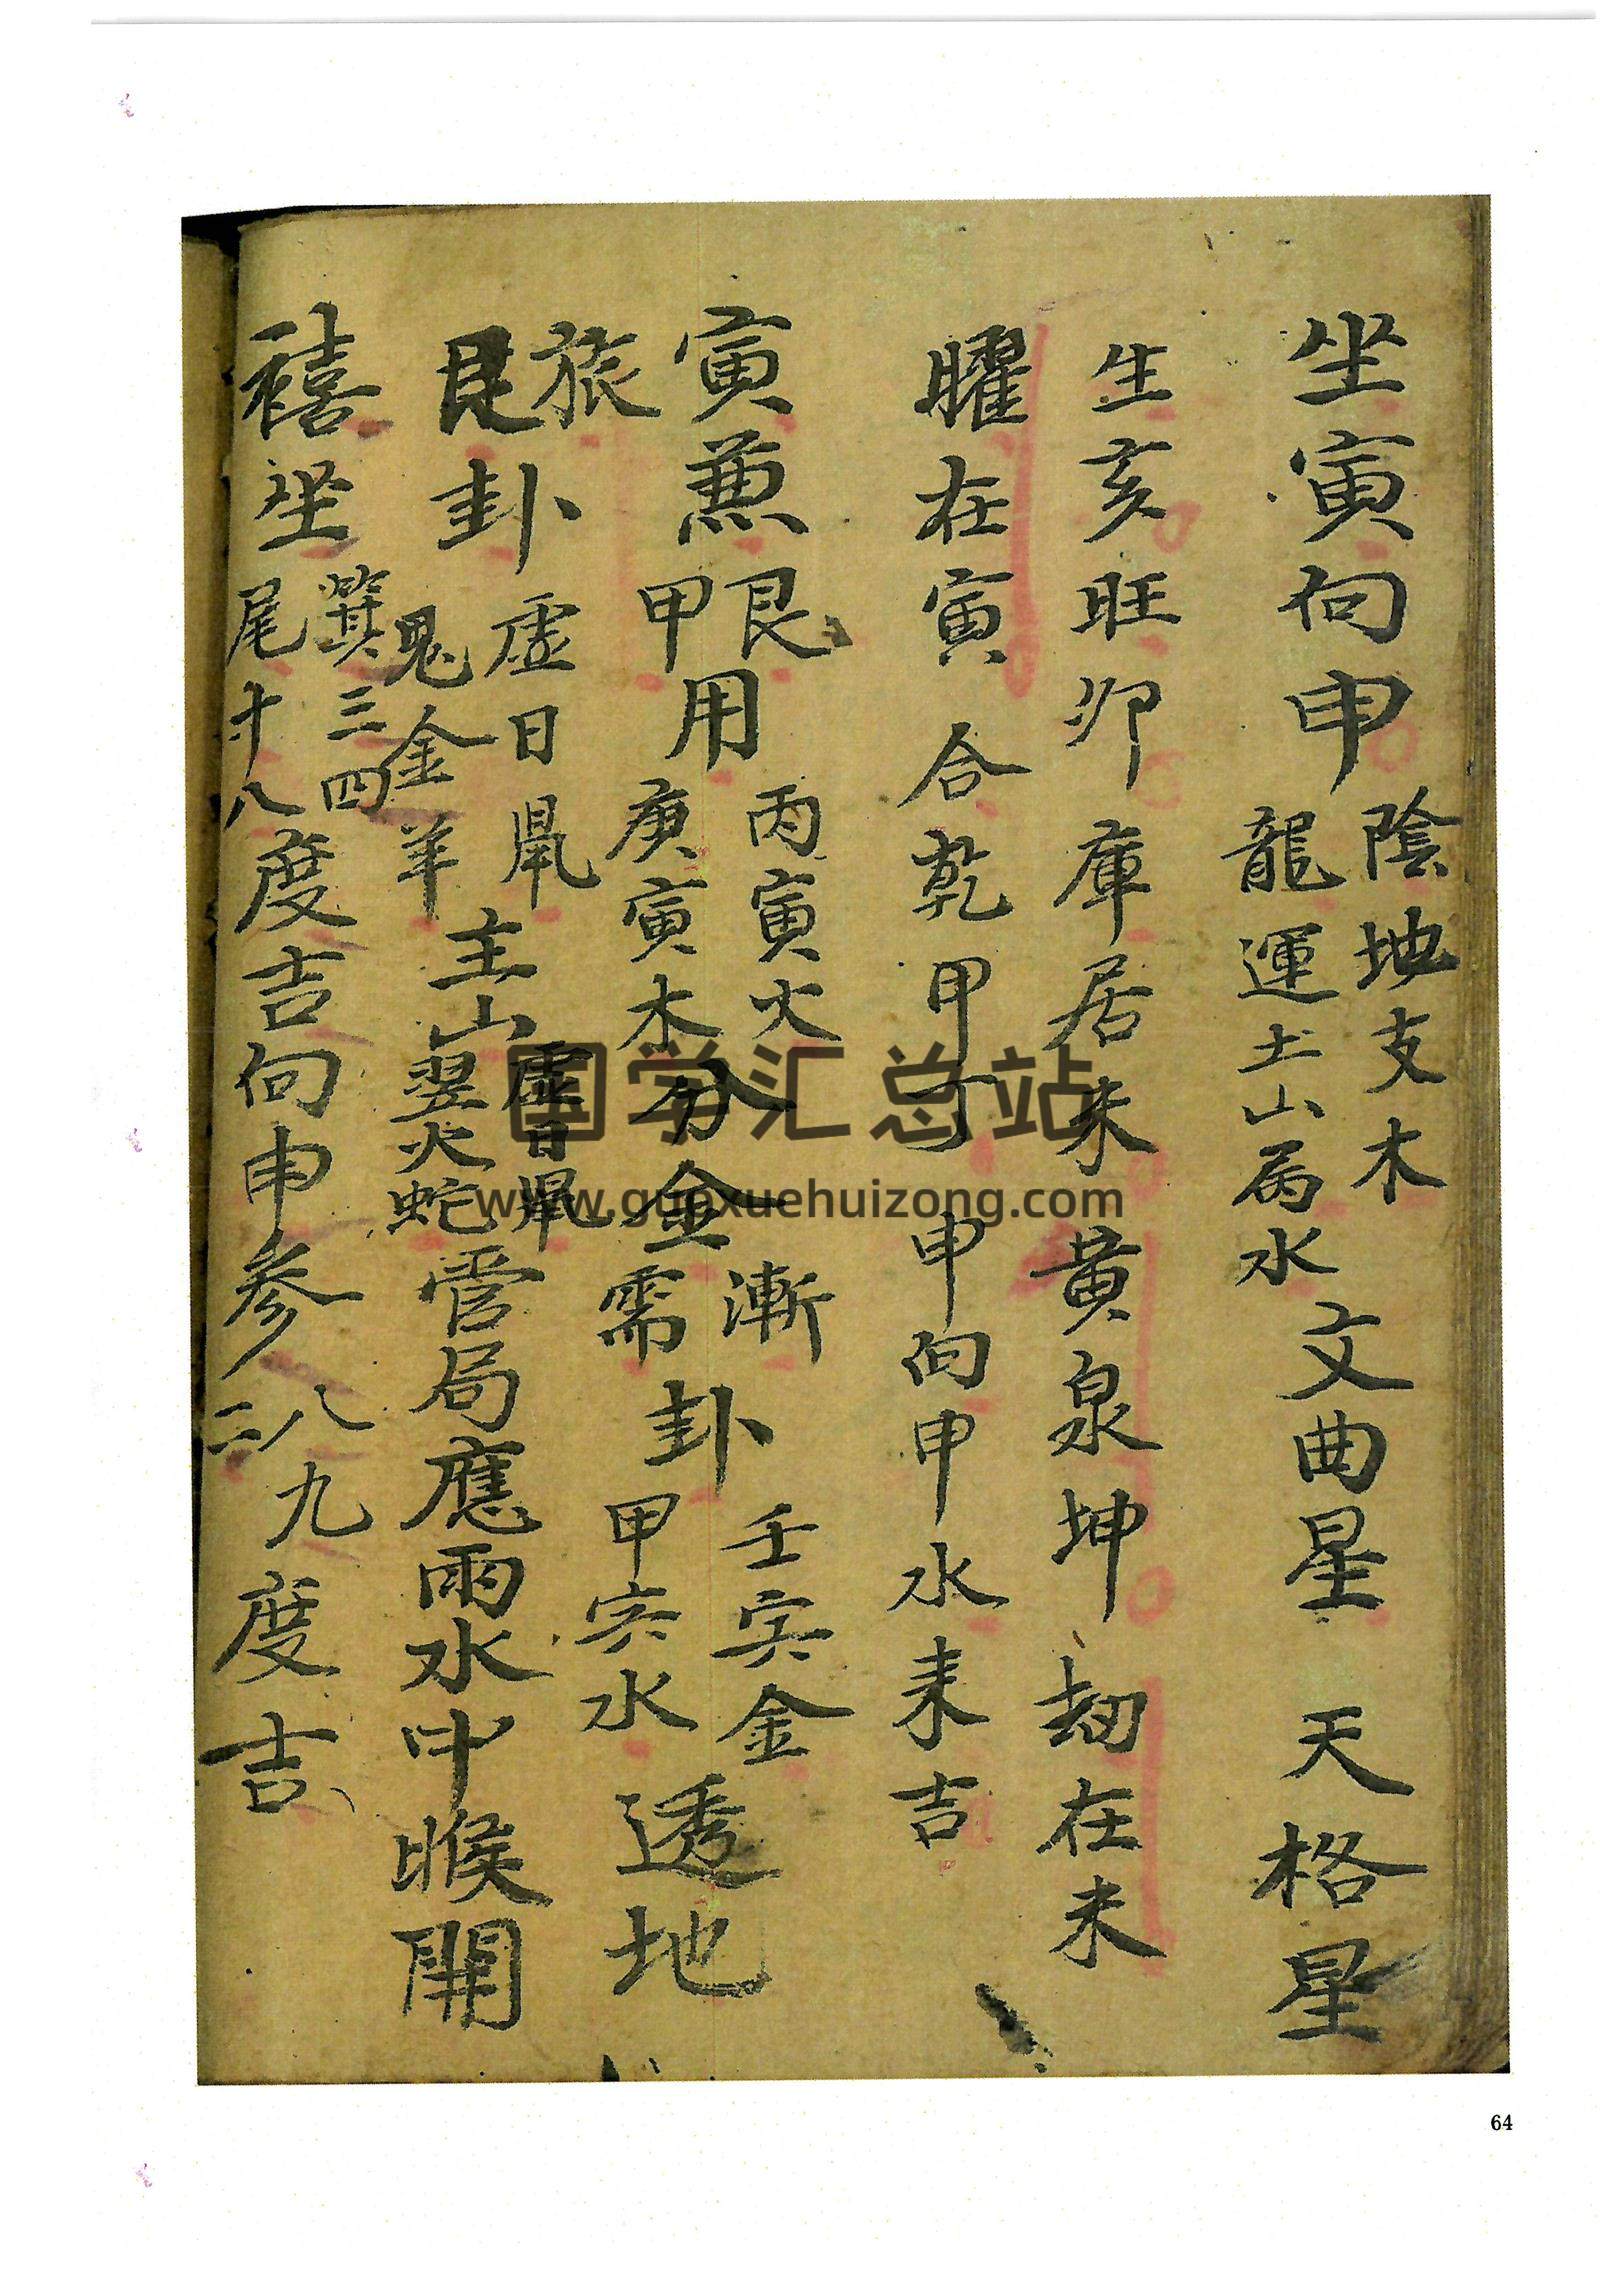 坐寅向申陰地支木龍運土山為水文曲星天格星
生亥旺卯庫居未黃泉坤劫在未
曜在寅合乾甲丁申向甲水来吉
寅兼艮甲用丙寅火庚寅木分金漸需卦壬寅金甲寅水透地
旅艮卦虛日鼠鬼金羊主山虛日鼠翌火蛇管局應雨水中睺開
禧坐箕三四尾十八度吉向申参八九二度吉
国学汇总站
www.guoxuehuizong.com
64